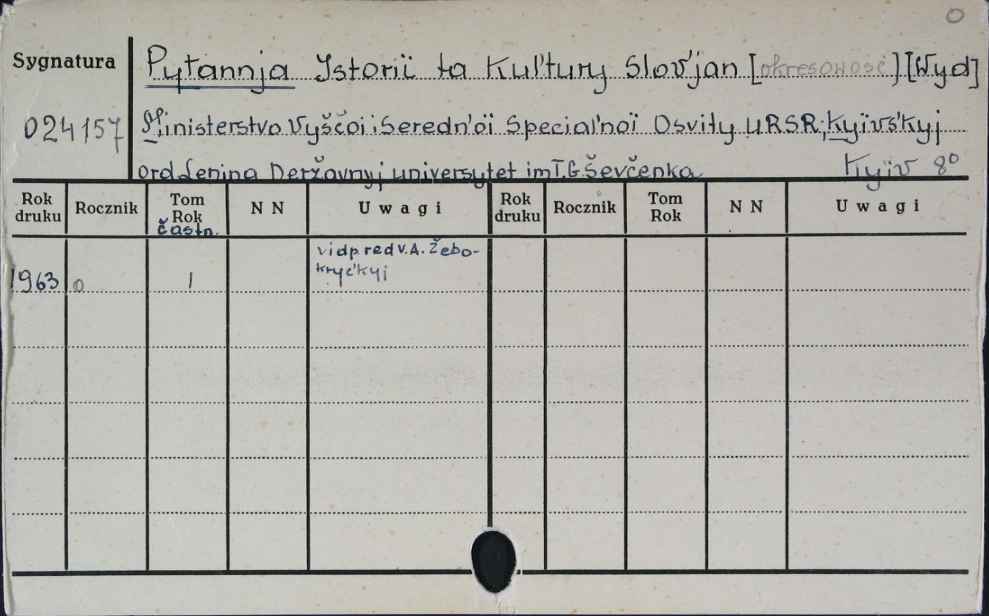 0
Sygnatura
Pytannja Istoriï ta Kul'tury Slov'jan [okresowość] [Wyd]
024157
Ministerstvo Vyščoï i Seredn'oï Special'noï Osvity URSR, Kyïvs'kyj
ord. Lenina Deržavnyj universytet im T.G. Ševčenka
Kyjiv 8º
Rok druku Rocznik Tom Rok N N Uwagi Rok druku Rocznik Tom Rok N N Uwagi
častn.
vidp red V.A. Žebo-
kryc'kyj
1963 0 1